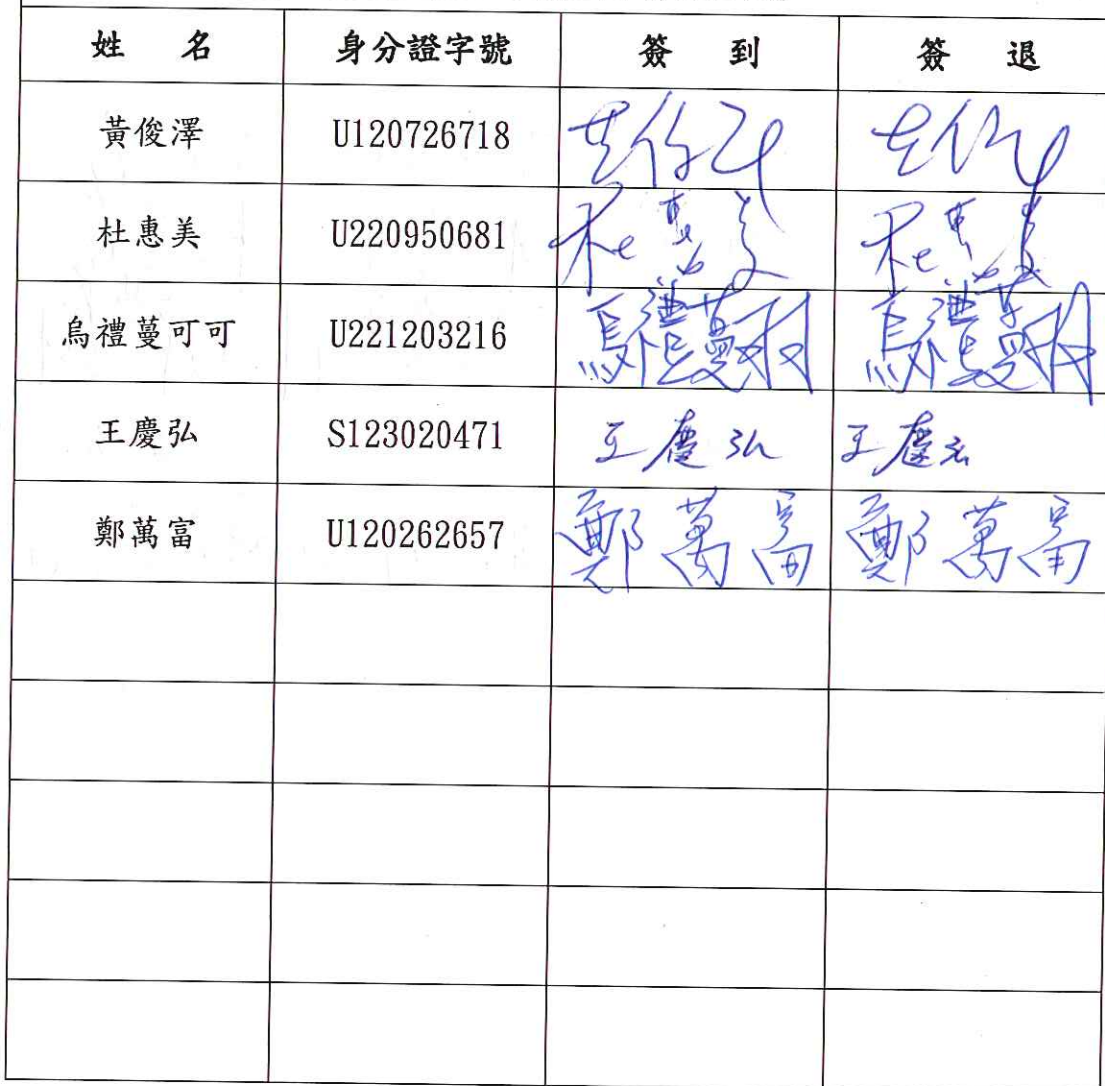 姓 名 身分證字號 簽 到 簽 退
黃俊澤 U120726718
杜惠美 U220950681 杜惠美 杜惠美
烏禮蔓可可 U221203216 烏禮蔓可可 烏禮蔓可可
王慶弘 S123020471 王慶弘 王慶弘
鄭萬富 U120262657 鄭萬富 鄭萬富